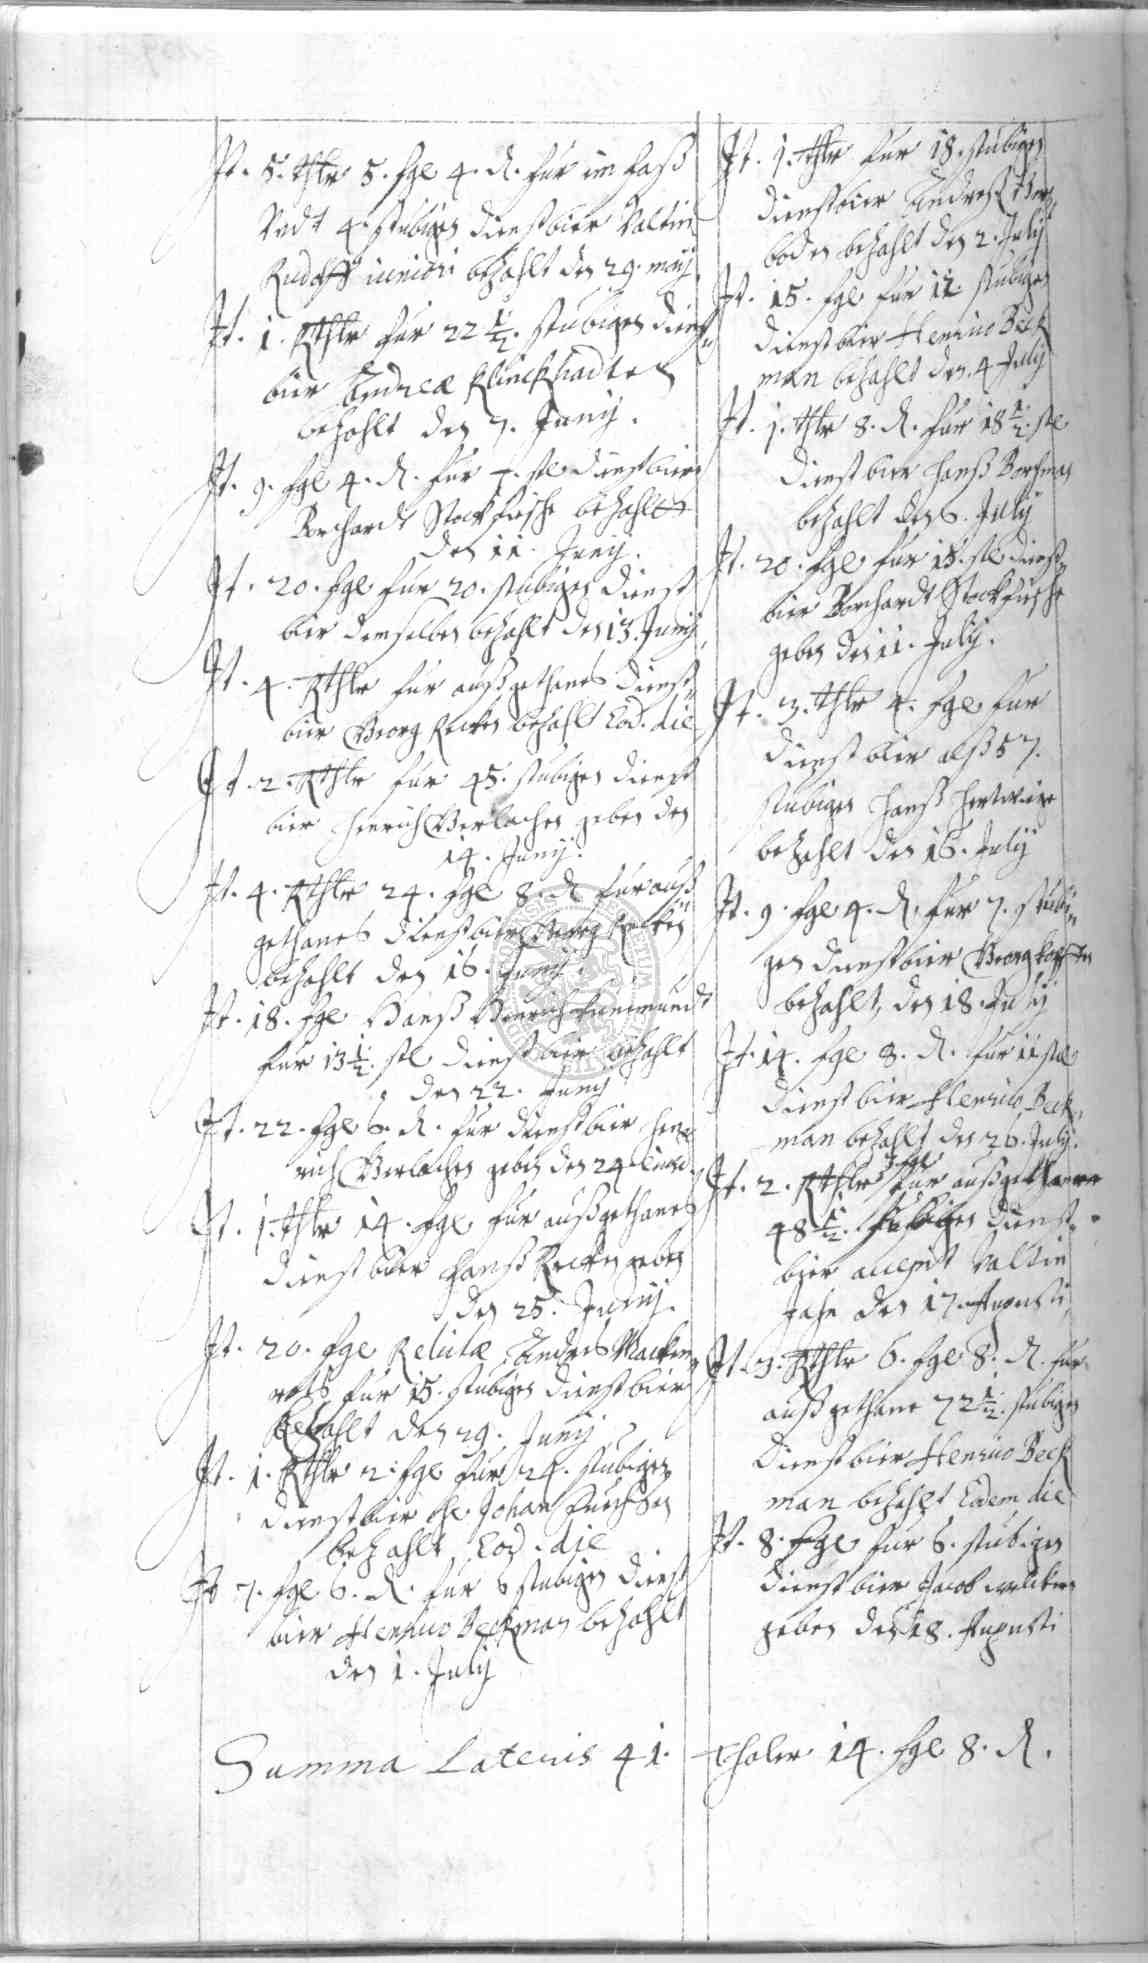 It. 5. thlr 5. fgl 4. d. fur im faß
Vndt 4. stubigen dienstbier Valtin
Rudolff iuniori bezahlt den 29. maij
It. 1. Rthlr fur 22 1/2. stubigen dienst
bier Andreæ Klinckhardten
bezahlt den 7. Junij.
It. 9. fgl 4. d. fur 7. stl dienstbier
Borchardt Stockfische bezahlt
den 11. Junij.
It. 20. fgl fur 20. stubigen dienst
bier demselben bezahlt den 13. Junij
It. 4. Rthlr fur außgethanes dienst
bier Georg Recken bezahlt Eod. die
It. 2. Rthlr fur 45. stubigen dienst
bier Henrich Gerlachen geben den
14. Junij.
It. 4. Rthlr 24. fgl 8. d fur auß
gethanes dienstbier Georg Recken
bezahlt den 16. Junij.
It. 18. fgl Hanß Henrich
fur 13 1/2. stl dienstbier bezahlt
den 22. Junij
It. 22. fgl 6. d. fur dienstbier Hen
rich Gerlachen geben den 24.
It. 1. thlr 14. fgl fur außgethanes
dienstbier Hanß Recken geben
den 25. Junij.
It. 20. fgl Relictæ Andres Macken
rots fur 15. stubigen dienstbier
bezahlt den 29. Junij
It. 1. Rthlr 2. fgl fur 24. stubigen
dienstbier Johan
bezahlt Eod. die
It 7. fgl 6. d. fur 6 stubigen dienst
bier Henrico Beckman bezahlt
den 1. July
It. 1. thlr fur 18. stubigen
dienstbier Andreß
boden bezahlt den 2. July
It. 15. fgl fur 11. stubigen
dienstbier Henrico Beck
man bezahlt den 4 July
It. 1. thlr 8. d. fur 18 1/2. stl
dienstbier Hanß
bezahlt den 6. July
It. 20. fgl fur 15. stl dienst
bier Borchardt Stockfische
geben den 11. July.
It. 3. thlr 4. fgl fur
dienstbier alß 57.
stubigen Hanß Hertwige
bezahlt den 16. July
It. 9. fgl 4. d. fur 7. stubi
gen dienstbier Georg
bezahlt, den 18. July
It. 14. fgl 8. d. fur 11 stl
dienstbier Henrico Beck
man bezahlt den 26. July.
It. 2. Rthlr fur außgethane
48 1/2. stubigen dienst
bier accepit Valtin
den 17. Augusti
It. 3. Rthlr 6. fgl 8. d. fur
außgethane 72 1/2. stubigen
dienstbier Henrico Beck
man bezahlt Eodem die
It. 8. fgl fur 6. stubigen
dienstbier Jacob
geben den 18. Augusti
Summa Lateris 41. thaler 14. fgl 8. d.